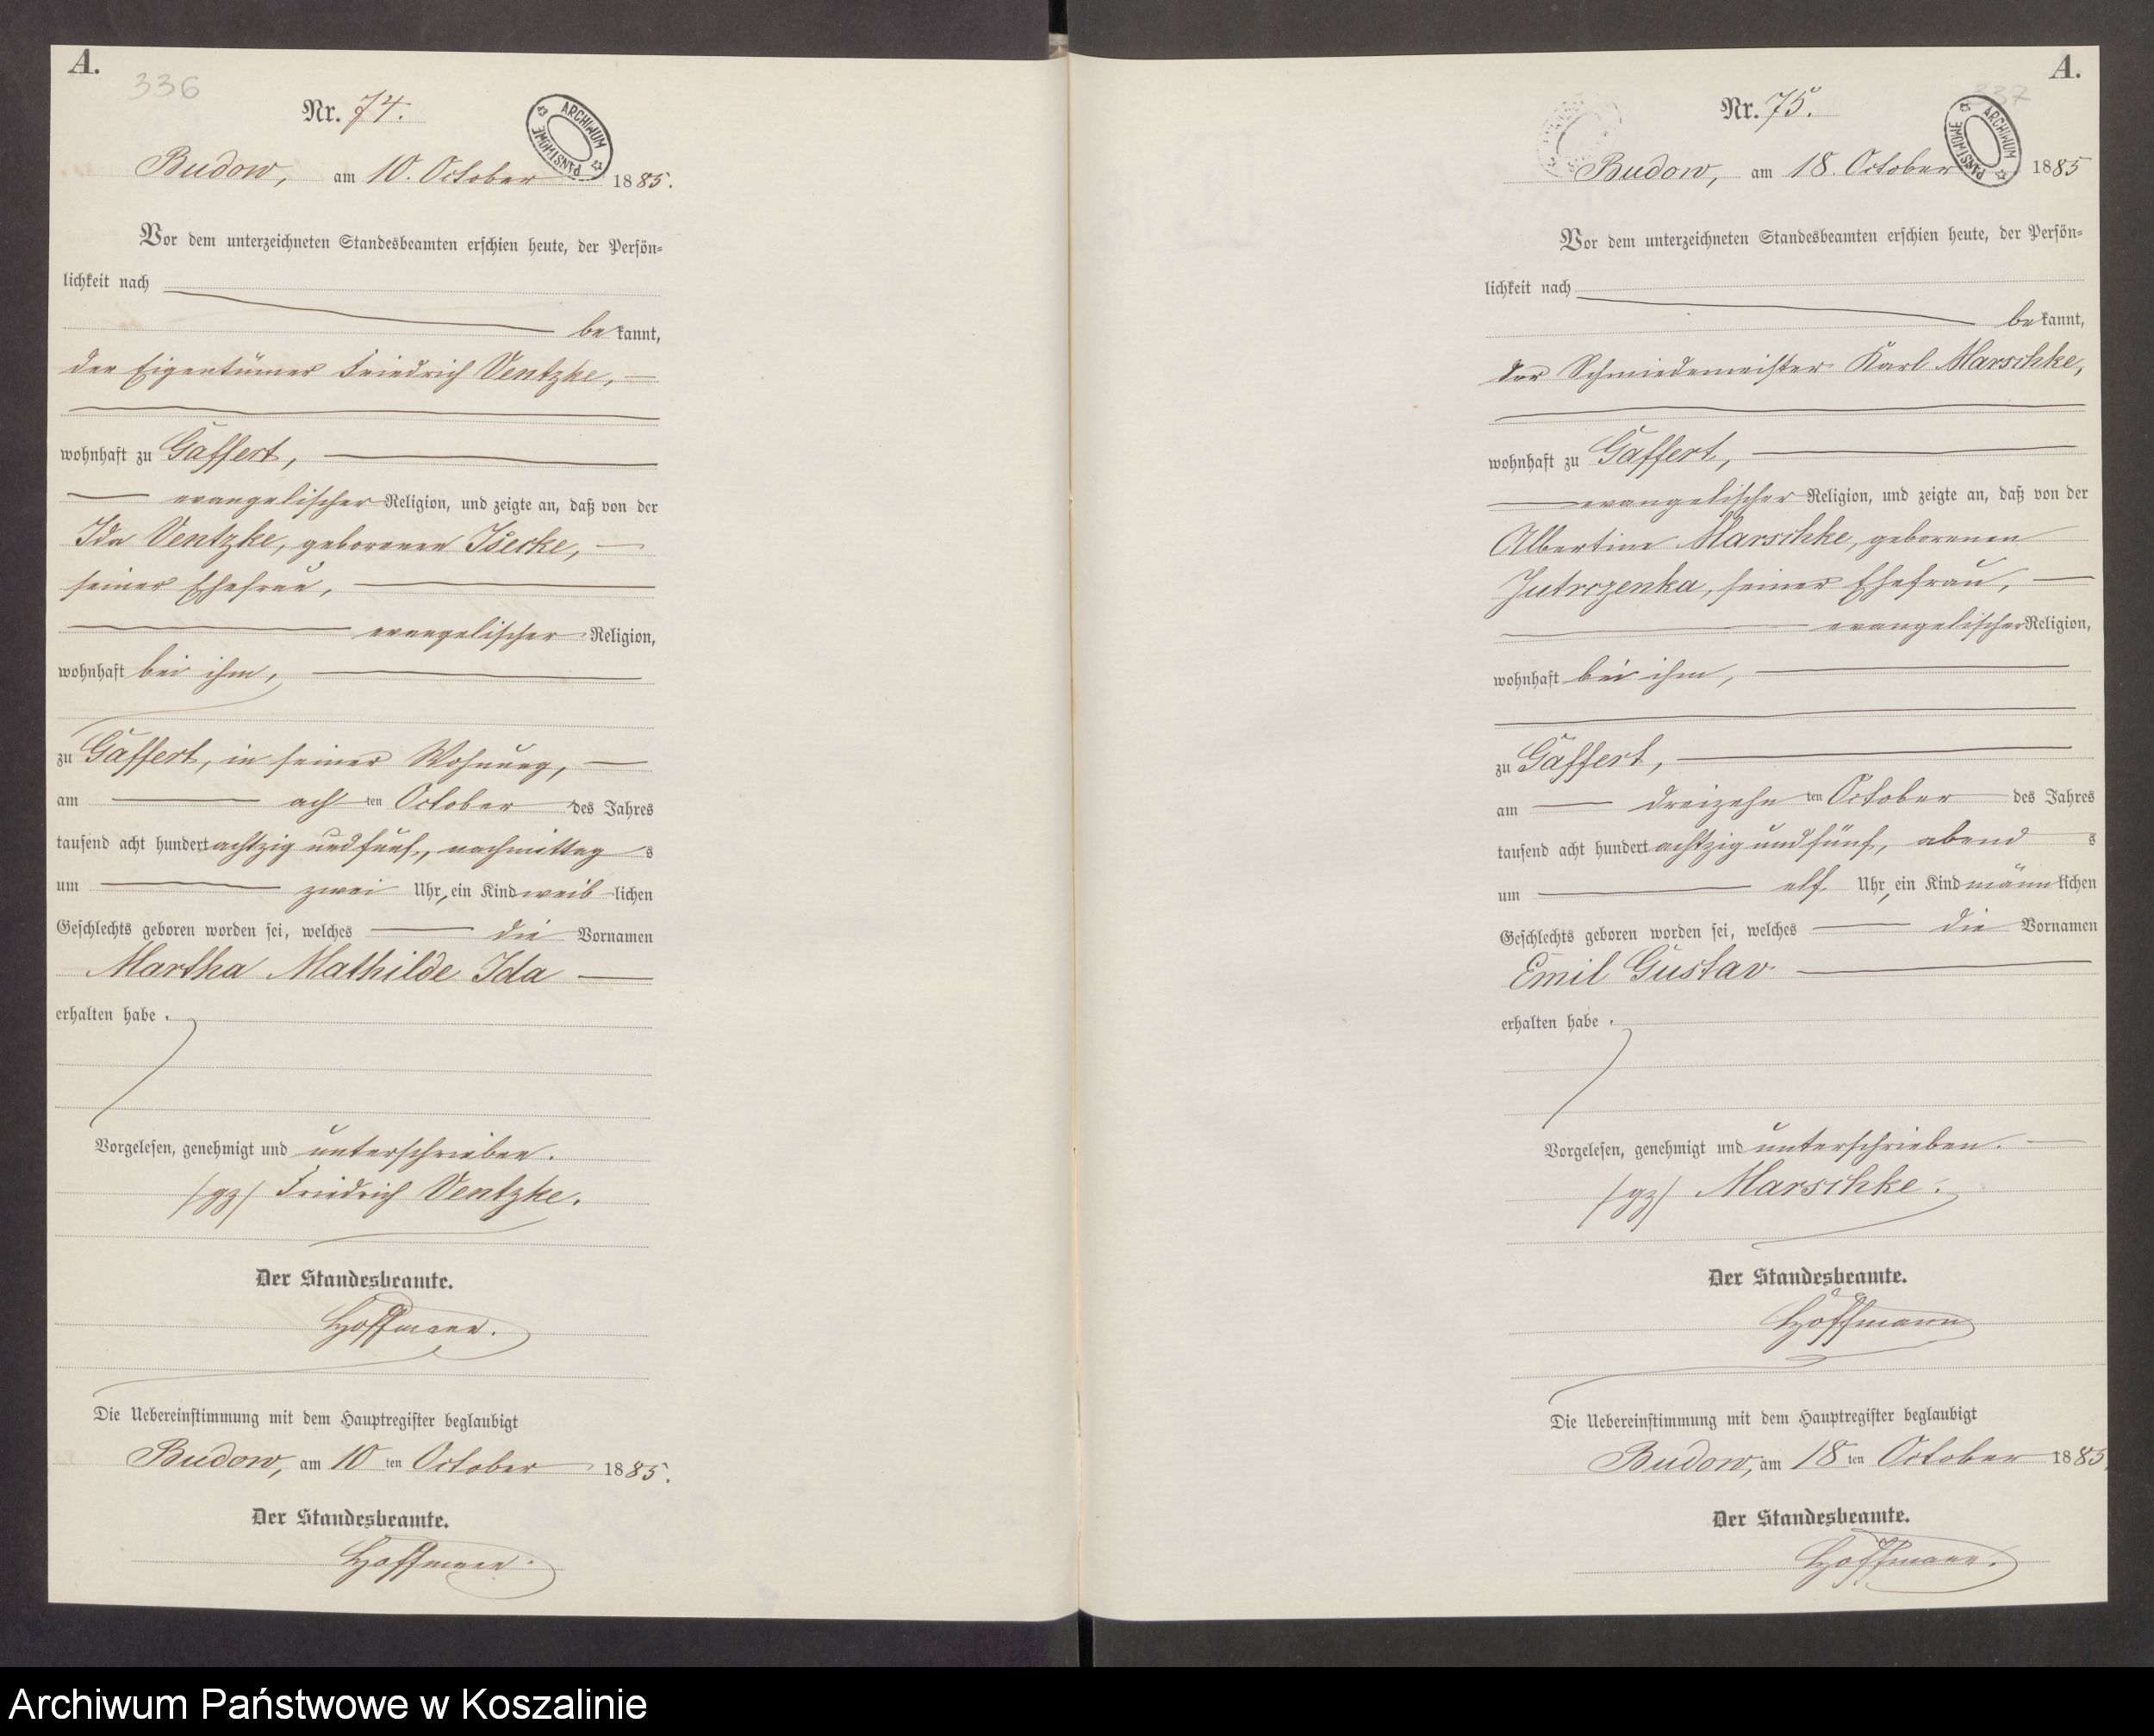 A.
336
Nr. 74.
ARCHIWUM PAŃSTWOWE
Budow, am 10. October 1885.
Vor dem unterzeichneten Standesbeamten erschien heute, der Persön=
lichkeit nach
bekannt,
der Eigentümer Friedrich Ventzke,
wohnhaft zu Gaffert,
evangelischer Religion, und zeigte an, daß von der
Ida Ventzke, geborenen Isecke,
seiner Ehefrau,
evangelischer Religion,
wohnhaft bei ihm,
zu Gaffert, in seiner Wohnung,
am achten October des Jahres
tausend acht hundert achtzig und fünf, nachmittags
um zwei Uhr, ein Kind weiblichen
Geschlechts geboren worden sei, welches die Vornamen
Martha Mathilde Ida
erhalten habe.
Vorgelesen, genehmigt und unterschrieben.
/gz/ Friedrich Ventzke.
Der Standesbeamte.
Hoffmann.
Die Uebereinstimmung mit dem Hauptregister beglaubigt
Budow, am 10ten October 1885.
Der Standesbeamte.
Hoffmann.
A.
337
Nr. 75.
ARCHIWUM PAŃSTWOWE
Budow, am 18. October 1885
Vor dem unterzeichneten Standesbeamten erschien heute, der Persön=
lichkeit nach
bekannt,
der Schmiedemeister Karl Marschke,
wohnhaft zu Gaffert,
evangelischer Religion, und zeigte an, daß von der
Albertine Marschke, geborenen
Jutrczenka, seiner Ehefrau,
evangelischer Religion,
wohnhaft bei ihm,
zu Gaffert,
am dreizehnten October des Jahres
tausend acht hundert achtzig und fünf, abends
um elf Uhr, ein Kind männlichen
Geschlechts geboren worden sei, welches die Vornamen
Emil Gustav
erhalten habe.
Vorgelesen, genehmigt und unterschrieben.
/gz/ Marschke.
Der Standesbeamte.
Hoffmann
Die Uebereinstimmung mit dem Hauptregister beglaubigt
Budow, am 18ten October 1885
Der Standesbeamte.
Hoffmann.
Archiwum Państwowe w Koszalinie